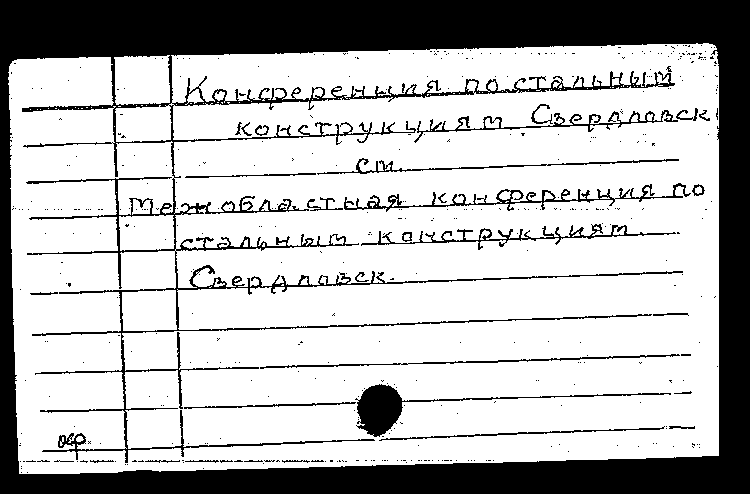 Конференция по стальным
конструкциям Свердловск
см.
Межобластная конференция по
стальным конструкциям.
Свердловск.